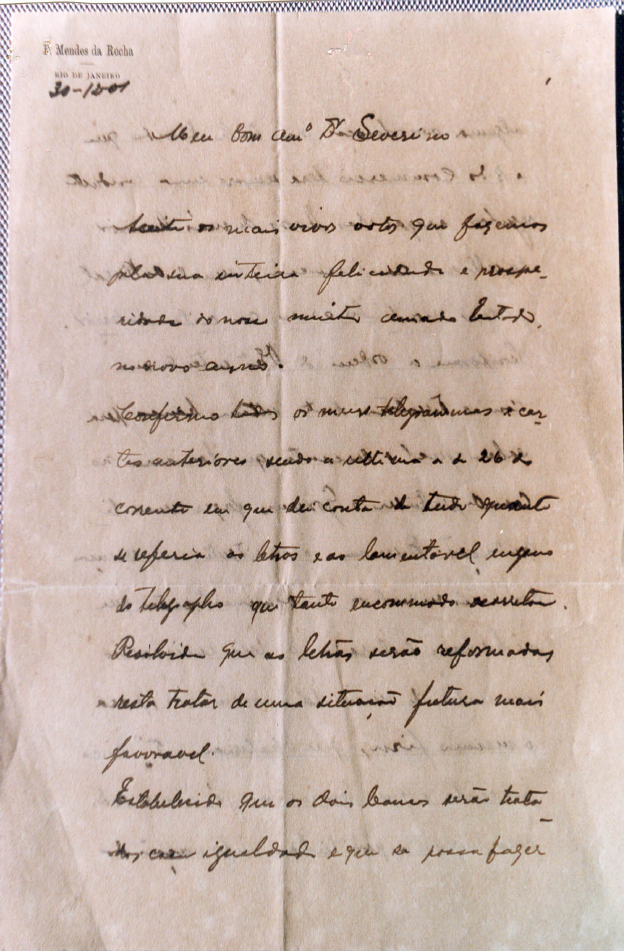 F. Mendes da Rocha
RIO DE JANEIRO
30-12-01
Meu bom amº Dr Severino
os mais vivos votos que fazemos
pela sua inteira felicidade e prospe-
ridade do nosso muito amado Estado,
no novo anno.
Confirmo todos os meus telegrammas e car-
tas anteriores sendo a ultima a de 26 do
corrente em que dei conta de tudo quanto
se referia as letras e ao lamentavel engano
do telegrapho que tanto encommodo acarretou.
Resolvido que as letras serão reformadas
resta tratar de uma situação futura mais
favoravel.
Estabelecido que os dois bancos serão trata-
dos com igualdade e que se possa fazer